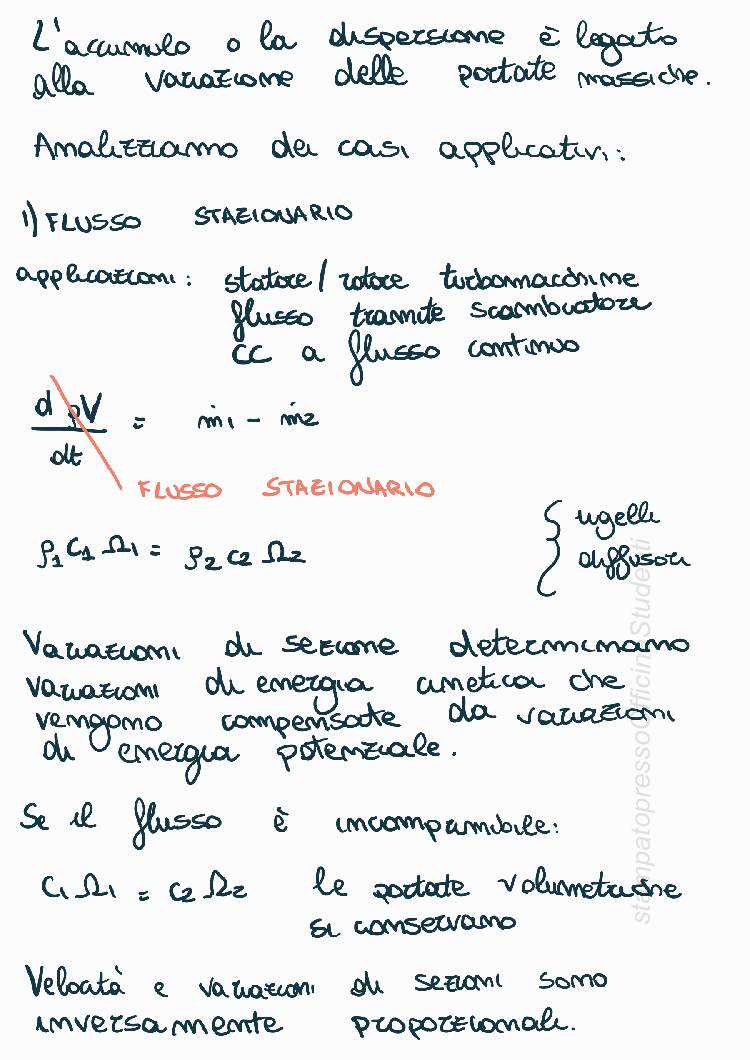 L'accumulo o la dispersione è legato
alla variazione delle portate massiche.
Analizziamo dei casi applicativi:
1) FLUSSO STAZIONARIO
applicazioni: statore/rotore turbomacchine
flusso tramite scambiatore
CC a flusso continuo
d ρV / dt = ṁ1 - ṁ2
FLUSSO STAZIONARIO
ρ1 c1 Ω1 = ρ2 c2 Ω2
{ ugelli
diffusori
Variazioni di sezione determinano
variazioni di energia cinetica che
vengono compensate da variazioni
di energia potenziale.
Se il flusso è incomprimibile:
c1 Ω1 = c2 Ω2 le portate volumetriche
si conservano
Velocità e variazioni di sezioni sono
inversamente proporzionali.
stampatopressoOfficinaStudenti